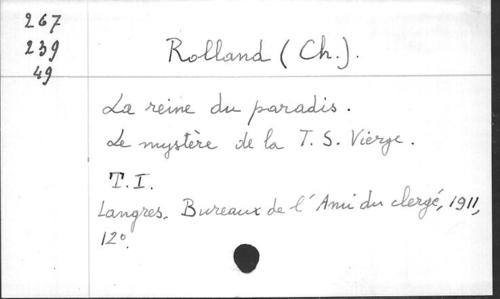 267
239
49
Rolland (Ch.).
La reine du paradis.
Le mystère de la T. S. Vierge.
T. I.
Langres, Bureaux de l'Ami du clergé, 1911,
12°.